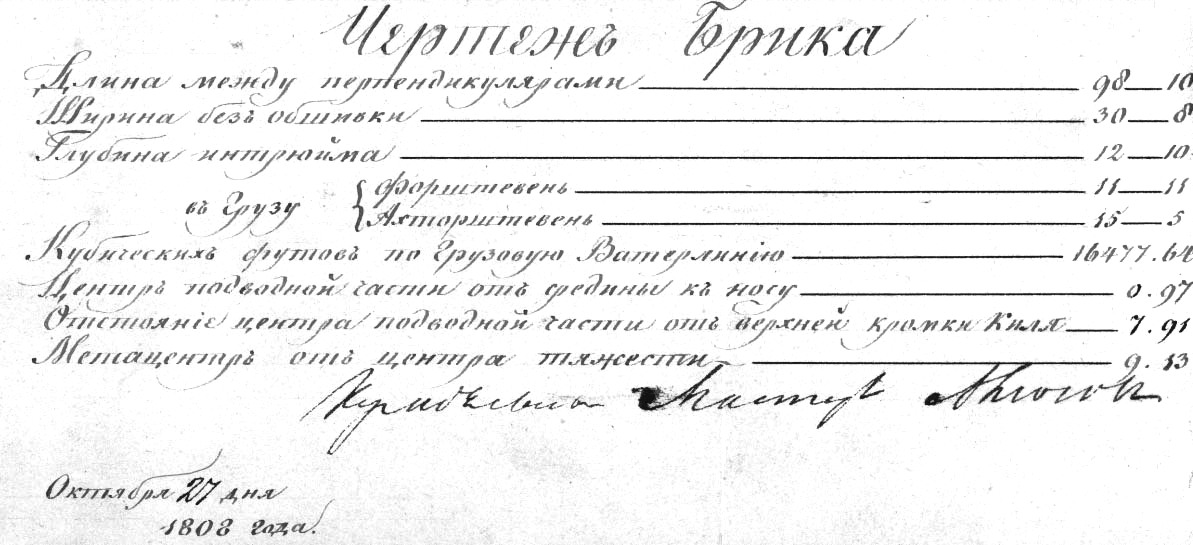 Чертежъ Брика
Длина между перпендикулярами 98 10
Ширина безъ обшивки 30 8
Глубина интрюйма 12 10
въ Грузу { Форштевень 11 11
Ахторштевень 15 5
Кубическихъ футовъ по Грузовую Ватерлинію 16477.64
Центръ подводной части отъ средины къ носу 0.97
Отстояніе центра подводной части отъ верхней кромки Киля 7.91
Метацентръ отъ центра тяжести 9.13
Мастеръ
Октября 27 дня
1808 года.